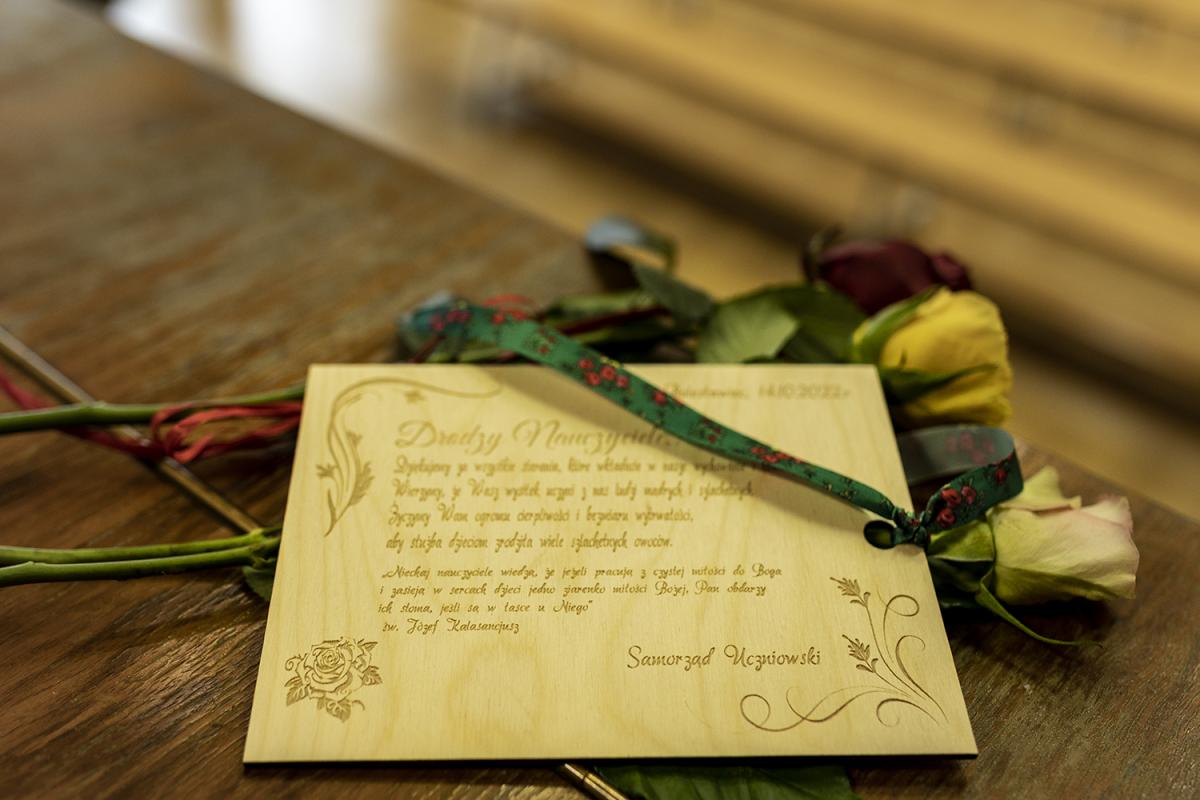 14.10.2022r.
Drodzy Nauczyciele
Dziękujemy za wszystkie starania, które wkładacie w nasze
Wierzymy, że Wasz wysiłek uczyni z nas ludzi mądrych i szlachetnych.
Życzymy Wam ogromu cierpliwości i bezmiaru wytrwałości,
aby służba dzieciom zrodziła wiele szlachetnych owoców.
„Niechaj nauczyciele wiedzą, że jeżeli pracują z czystej miłości do Boga
i zasieją w sercach dzieci jedno ziarenko miłości Bożej, Pan obdarzy
ich słomą, jeśli są w łasce u Niego"
św. Józef Kalasancjusz
Samorząd Uczniowski